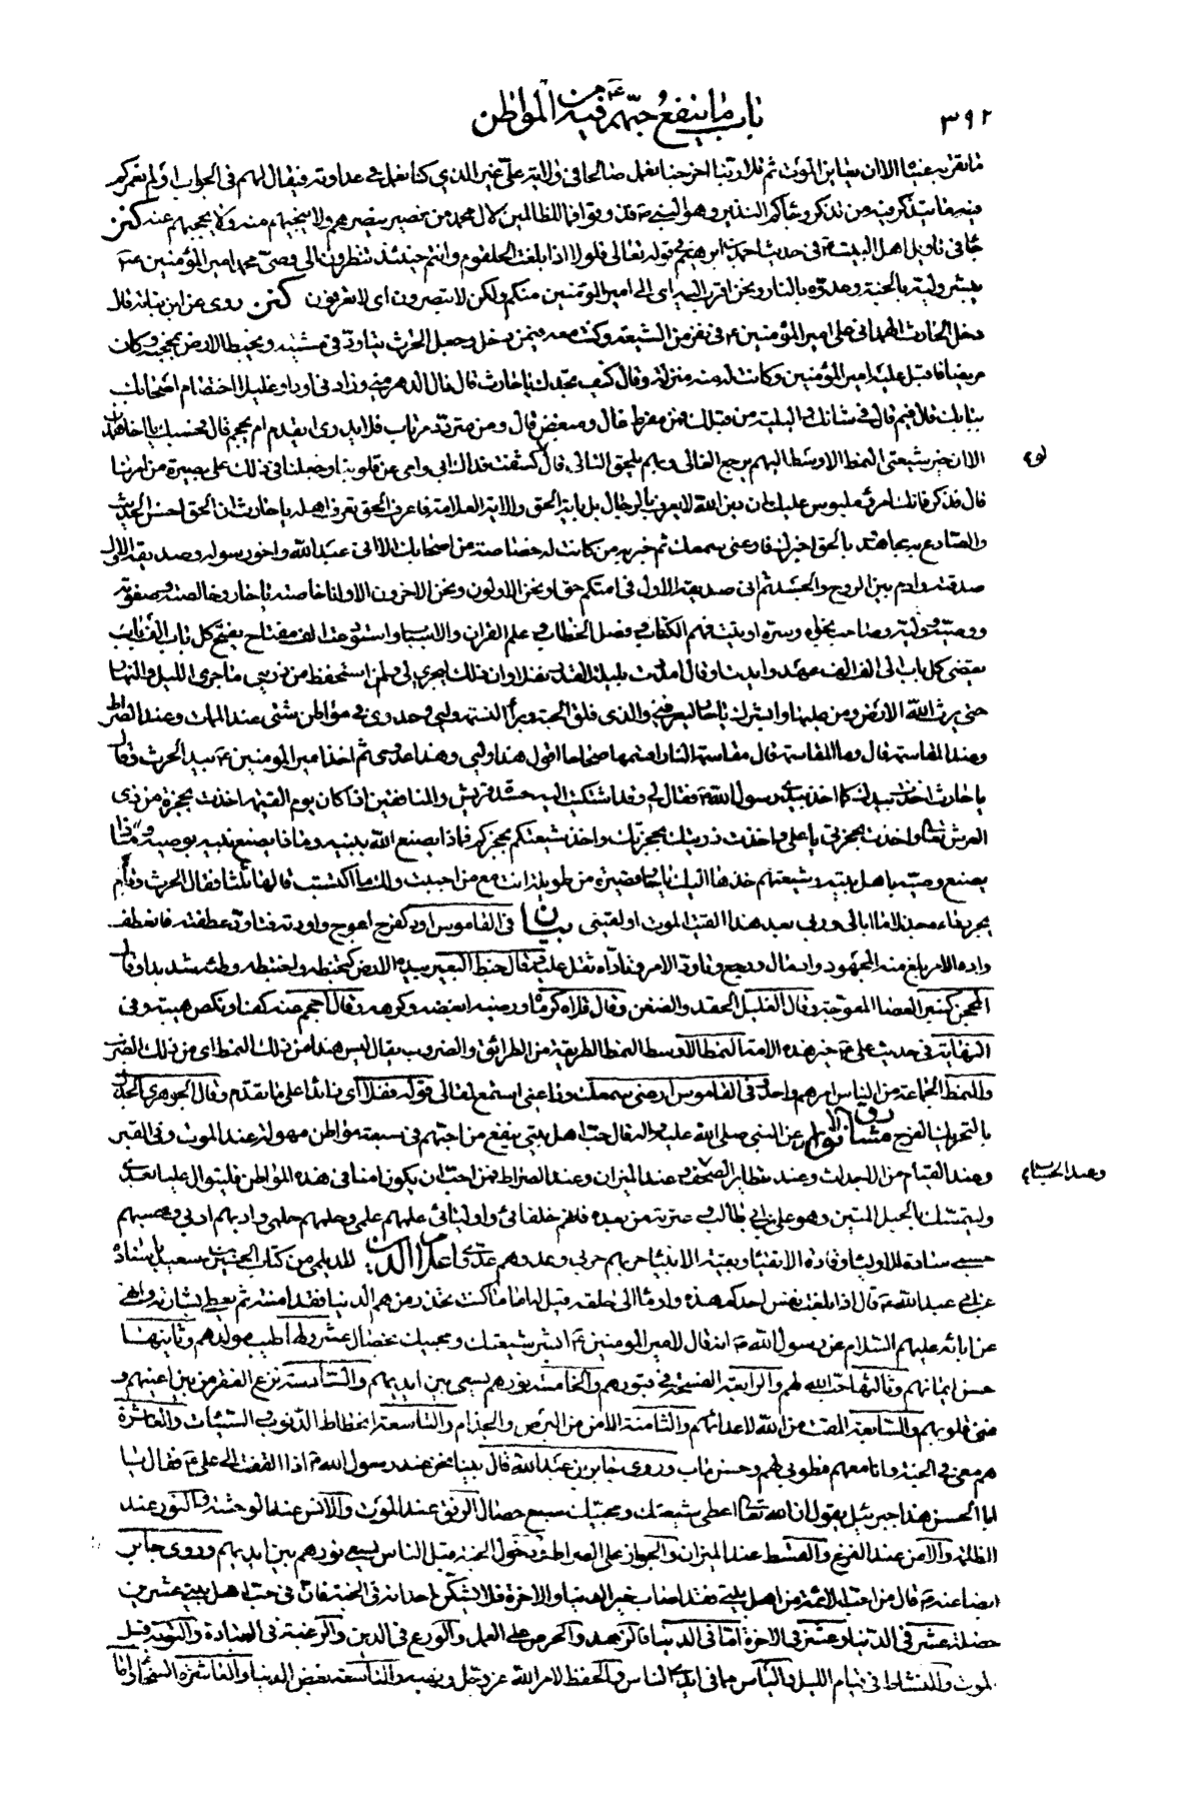 ٣٩٢
باب ما ينفع حبّهم فيه من المواطن
الا ان يعاين الموت ثم قال ربنا اخرجنا نعمل صالحا في ولاية علي غير الذي كنا نعمل في عداوته فيقال لهم في الجواب اولم نعمركم
ما يتذكر فيه من تذكر وجاءكم النذير وهو النبي فذوقوا فما للظالمين لال محمد من نصير ينصرهم ولا ينجيهم منه ولا يحجبهم عنه كنز
جاء في تاويل اهل البيت في حديث احمد بن ابراهيم قوله تعالى فلولا اذا بلغت الحلقوم وانتم حينئذ تنظرون الى وصي محمد امير المؤمنين
يبشر وليه بالجنة وعدوه بالنار ونحن اقرب اليه اى الى امير المؤمنين منكم ولكن لا تبصرون اى لا تعرفون كنز روى عن ابن نباتة قال
دخل الحارث الهمداني على امير المؤمنين ع في نفر من الشيعة وكنت معه فيمن دخل وجعل الحرث يتاود في مشيته ويخبط الارض بمحجنه وكان
مريضا فاقبل عليه امير المؤمنين وكانت له منه منزلة وقال كيف تجدك يا حارث قال نال الدهر مني وزادني اوارا وغليلا اختصام اصحابك
ببابك قال فيم قال في شانك والبلية من قبلك فمن مفرط غال ومبغض قال ومن متردد مرتاب فلا يدرى ايقدم ام يحجم قال فحسبك يا اخا همدان
الا ان خير شيعتي النمط الاوسط اليهم يرجع الغالي وبهم يلحق التالي قال لو كشفت فداك ابي وامي عن قلوبنا وجعلتنا في ذلك على بصيرة من امرنا
قال فذكر فانك امرؤ ملبوس عليك ان دين الله لا يعرف بالرجال بل باية الحق والاية العلامة فاعرف الحق تعرف اهله يا حارث ان الحق احسن الحديث
والصادع به مجاهد بالحق اخبرك فارعني سمعك ثم خبر به من كانت له خصاصة من اصحابك الا اني عبد الله واخو رسوله وصديقه الاول
صدقته وادم بين الروح والجسد ثم اني صديقه الاول في امتكم حقا ونحن الاولون ونحن الاخرون الا وانا خاصته يا حار وخالصته وصفوته
ووصيه ووليه وصاحب نجواه وسره اوتيت فهم الكتاب وفصل الخطاب وعلم القران والاسباب واستودعت الف مفتاح يفتح كل باب الف باب
يفضي كل باب الى الف الف عهد وايدت او قال امددت بليلة القدر نفلا وان ذلك ليجري لي ولمن استحفظ من ذريتي ما جرى الليل والنهار
حتى يرث الله الارض ومن عليها وابشرك يا حار ليعرفني والذي فلق الحبة وبرأ النسمة وليي وعدوي في مواطن شتى عند الممات وعند الصراط
وعند المقاسمة قال وما المقاسمة قال مقاسمة النار اقسمها صحاحا اقول هذا وليي وهذا عدوي ثم اخذ امير المؤمنين ع بيد الحرث وقال
يا حارث اخذت بيدك كما اخذ بيدي رسول الله ص فقال لي وقد اشتكيت اليه حسدة قريش والمنافقين اذا كان يوم القيمة اخذت بحجزة من ذي
العرش تعالى واخذت بحجزتي يا علي واخذت ذريتك بحجزتك واخذ شيعتكم بحجزكم فماذا يصنع الله بنبيه وماذا يصنع نبيه بوصيه وماذا
يصنع وصيه باهل بيته وشيعتهم خذها اليك يا حار قصيرة من طويلة انت مع من احببت ولك ما اكتسبت قالها ثلثا فقال الحرث وقام
يجر رداءه جذلا ما ابالي وربي بعد هذا القيت الموت او لقيني بيان في القاموس اود كفرح اعوج واودته فتاود عطفته فانعطف
واده الامر بلغ منه المجهود واد مال ورجع وتاود الامر وتاداه ثقل عليه وقال خبط البعير بيده الارض كتخبطه واختبطه وطئه شديدا وقال
المحجن كمنبر العصا المعوجة وقال الغليل الحقد والضغن وقال قلاه كرماه ورضيه ابغضه وكرهه وقال احجم عنه كف او نكص هيبة وفي
النهاية في حديث علي ع خير هذه الامة النمط الاوسط النمط الطريقة من الطرائق والضروب يقال ليس هذا من ذلك النمط اى من ذلك الضرب
والنمط الجماعة من الناس امرهم واحد وفي القاموس ارعني سمعك وراعني استمع لمقالي قوله نفلا اى زائدا على ما تقدم وقال الجوهري الجذل
بالتحريك الفرح مشارق الانوار عن النبي صلى الله عليه واله قال حب اهل بيتي ينفع من احبهم في سبعة مواطن مهولة عند الموت وفي القبر
وعند القيام من الاجداث وعند تطاير الصحف وعند الميزان وعند الصراط فمن احب ان يكون امنا في هذه المواطن فليتوال عليا بعدي
وليتمسك بالحبل المتين وهو علي بن ابي طالب وعترته من بعده فانهم خلفائي واوليائي علمهم علمي وحلمهم حلمي وادبهم ادبي وحسبهم
حسبي سادة الاولياء وقادة الاتقياء وبقية الانبياء حربهم حربي وعدوهم عدوي اعلام الدين للديلمي من كتاب الحسين بن سعيد باسناده
عن ابي عبد الله ع قال اذا بلغت نفس احدكم هذه واومأ الى حلقه قيل له اما ما كنت تحذر من هم الدنيا فقد امنته ثم يعطى بشارته
عن ابائه عليهم السلام عن رسول الله ص انه قال لامير المؤمنين ع ابشر شيعتك ومحبيك بخصال عشر اولها طيب مولدهم وثانيتها
حسن ايمانهم وثالثها حب الله لهم والرابعة الفسحة في قبورهم والخامسة نورهم يسعى بين ايديهم والسادسة نزع الفقر من بين اعينهم و
غنى قلوبهم والسابعة المقت من الله لاعدائهم والثامنة الامن من البرص والجذام والتاسعة انحطاط الذنوب والسيئات والعاشرة
هم معي في الجنة وانا معهم فطوبى لهم وحسن ماب وروى جابر بن عبد الله قال بينا نحن عند رسول الله ص اذا التفت الى علي ع فقال يا
ابا الحسن هذا جبرئيل يقول ان الله تعالى اعطى شيعتك ومحبيك سبع خصال الرفق عند الموت والانس عند الوحشة والنور عند
الظلمة والامن عند الفزع والقسط عند الميزان والجواز على الصراط ودخول الجنة قبل الناس يسعى نورهم بين ايديهم وروى جابر
ايضا عنه ص قال من احب الائمة من اهل بيتي فقد اصاب خير الدنيا والاخرة فلا يشكن احد انه في الجنة فان في حب اهل بيتي عشرين
خصلة عشر في الدنيا وعشر في الاخرة اما في الدنيا فالزهد والحرص على العمل والورع في الدين والرغبة في العبادة والتوبة قبل
الموت والنشاط في قيام الليل والياس مما في ايدي الناس والحفظ لامر الله عز وجل ونهيه والتاسعة بغض الدنيا والعاشرة السخاء واما
وعند الحساب